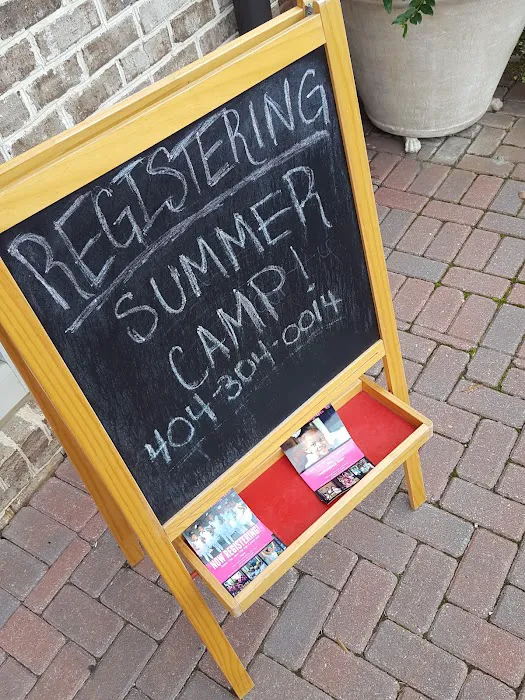 REGISTERING
SUMMER
CAMP!
404-304-0014
NOW REGISTERING